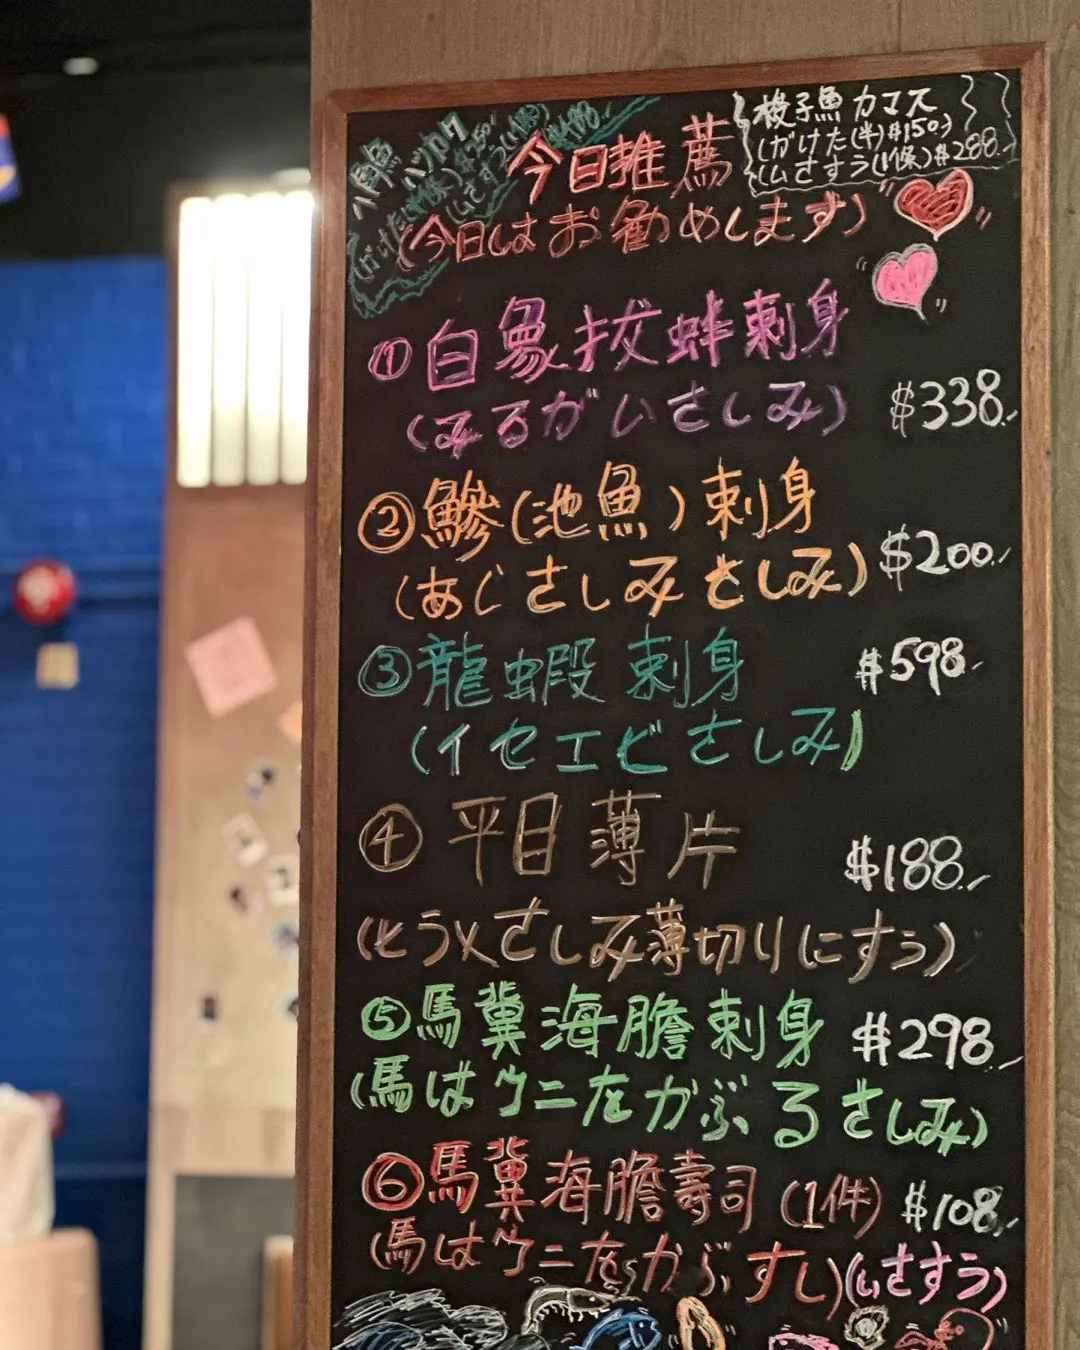 今日推薦
(今日はお勧めします)
梭子魚 カマス
(がけた(半)$150)
(ムさすう(1條)$288.
①白象抆蚌刺身
(みるがいさしみ)
$338.
②鰺(池魚)刺身
(あじさしみさしみ)
$200.
③龍蝦刺身
$598.
(イセエビさしみ)
④平目薄片
$188.
(とうメさしみ薄切りにすう)
⑤馬糞海膽刺身
$298.
(馬はウニをかぶるさしみ)
⑥馬糞海膽壽司(1件)
$108.
(馬はウニをかぶすし)(ムさすう)